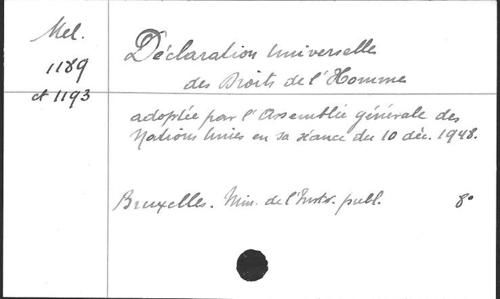 Mel.
1189
et 1193
Déclaration Universelle
des Droits de l'Homme
adoptée par l'Assemblée générale des
Nations Unies en sa séance du 10 déc. 1948.
Bruxelles. Min. de l'Instr. publ. 8°